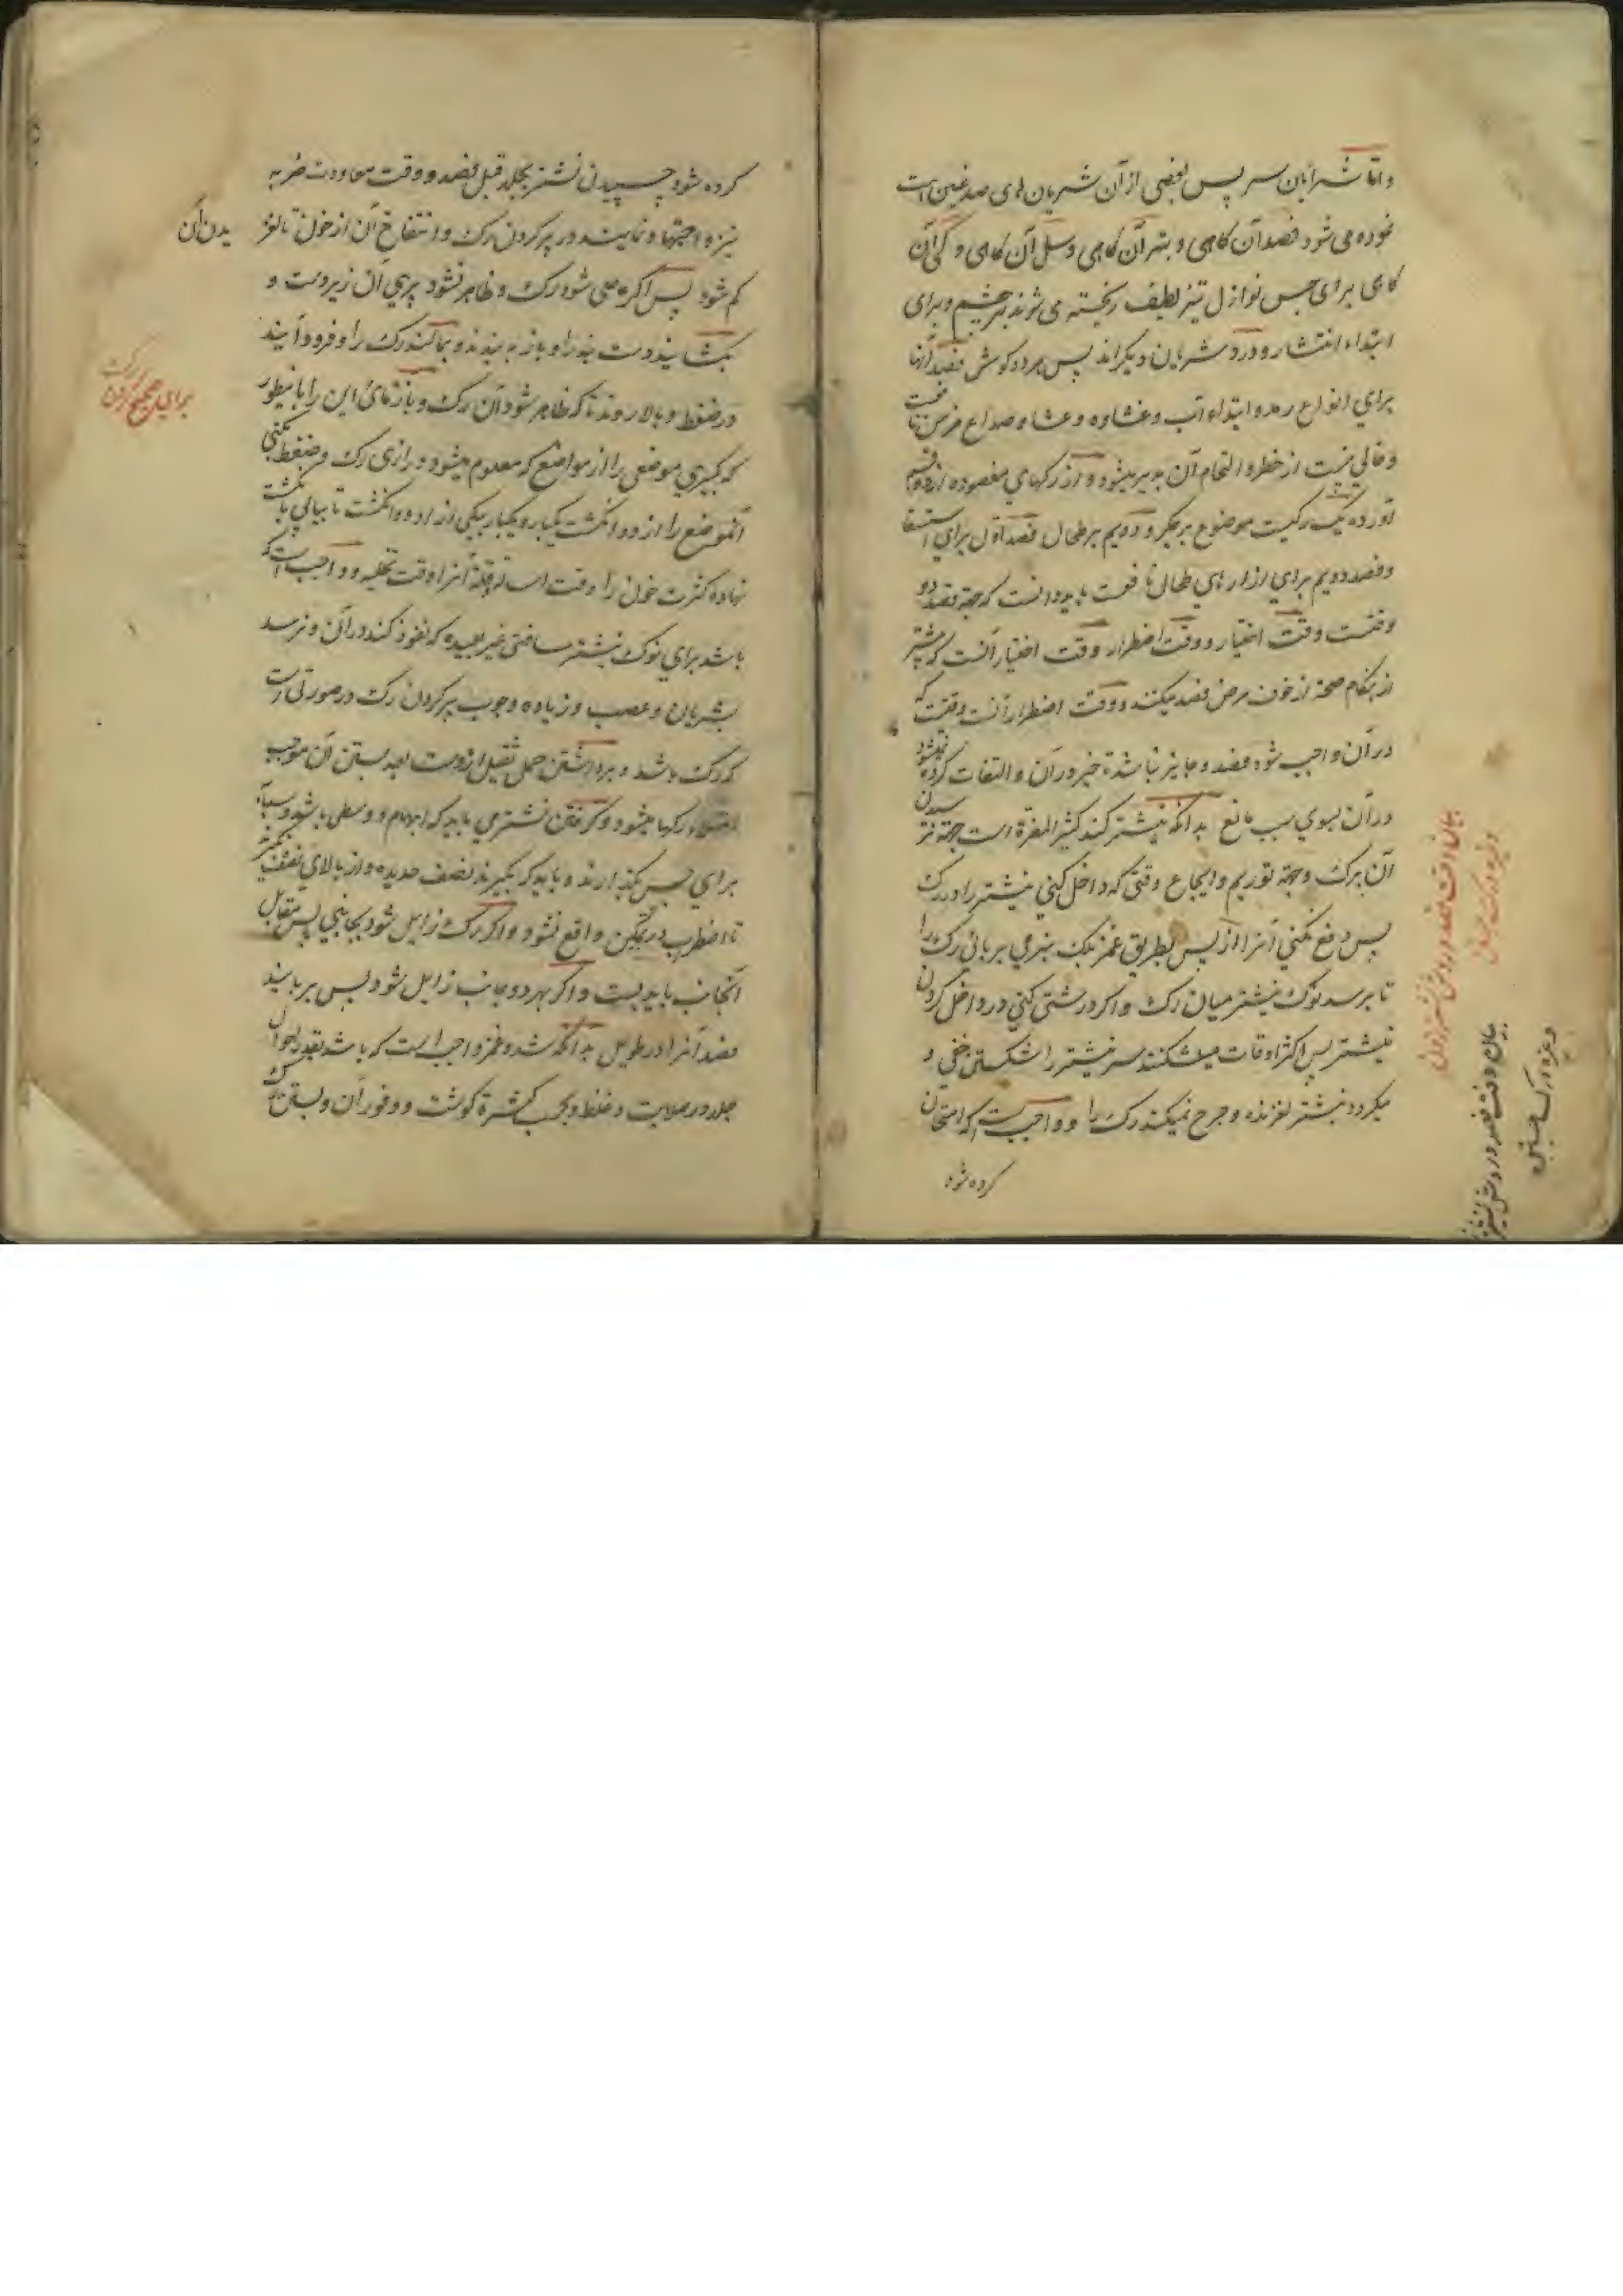 واما شرایان سر پس بعضی از آن شریان های صدغین است
نموده می شود فصد آن کاهی و بتر آن کاهی و سل آن کاهی و کی آن
کاهی برای حبس نوازل تیز لطیف ریخته می شوند بر چشم و برای
ابتداء انتشار و دو شریان دیکراند پس هر دو کوش فصد آنها
برای انواع رمد و ابتداء آب و غشاوه و عشا و صداع مزمن
و خالی نیست از خطر و التحام آن بدیر میشود و از رکهای مفصوده
یک رکیست موضوع بر جکر و دویم بر طحال فصد اول برای استسقا
و فصد دویم برای ازارهای طحال نافعست باید دانست که جهة فصد دو
وقتست وقت اختیار و وقت اضطرار وقت اختیار آنست که پیشتر
از هنکام صحة از خوف مرض فصد میکنند و وقت اضطرار آنست وقتیست که
در آن واجب شود فصد و جایز نباشد تاخیر در آن و التفات کرده نمیشود
در آن بسوی سبب مانع بدانکه نیشتر کند کثیر المضرة است جهة نرسیدن
آن برک و جهة توریم و ایجاع وقتی که داخل کنی نیشتر را در رک
پس دفع مکنی آنرا از پس بطریق غمز بلک بنرمی بربائی رک را
تا برسد نوک نیشتر میان رک و اکر درشتی کنی در داخل کردن
نیشتر پس اکثر اوقات میشکند سر نیشتر را شکستن خفی و
میکردد نیشتر لغزنده و جرح نمیکند رک را و واجبست که امتحان
کرده شود
بیان وقت فصد و روش نشتر زدن
و غیره و رک جستن
بیان وقت فصد و روش نشتر
و غیره و رک جستن
کرده شود چسپیدن نشتر بجلد قبل فصد و وقت معاودت ضربه
نیزه و اجتهاد نمایند در پر کردن رک و انتفاخ آن از خون تا لغز
یدن آن
کم شود پس اکر عاصی شود رک و ظاهر نشود پری آن زیر دست و
بکشایند دست بند را و باز به بندند و بمالند رک را و فرود آیند
در ضغط و بالا روند تا که ظاهر شود آن رک و بازمائی این را باینطور
که بکیری موضعی را از مواضع که معلوم میشود درازی رک و ضغط بکنی
آنموضع را از دو انکشت یکبار و یکبار بیکی از دو انکشت تا بیابی
نهاده کثرت خون را وقت اساله و قلة آنرا وقت تخلیه و واجبست که
باشد برای نوک نیشتر مسافتی غیر بعیده که نفوذ کند در آن و نرسد
بشریان و عصب و زیاده وجوب پر کردن رک در صورتی است
که رک باشد و برداشتن حمل ثقیل از دست بعد بستن آن موجب
امتلاء رکها میشود و کرفتن نشتر می باید که ابهام و وسطی باشد و سبابه
برای حبس بکذارند و باید که بکیرند نصف حدیده و از بالای نصف نکیرند
تا اضطراب در تمکین واقع نشود و اکر رک زایل شود بجانبی پس مقابل
آنجانب باید بست و اکر بهر دو جانب زایل شود پس بر بایند
فصد آنرا در طویل بدانکه شد و غمز واجب است که باشد بقدر احوال
جلد در صلابت و غلظ و بحسب کثرة کوشت و وفور آن و بستن